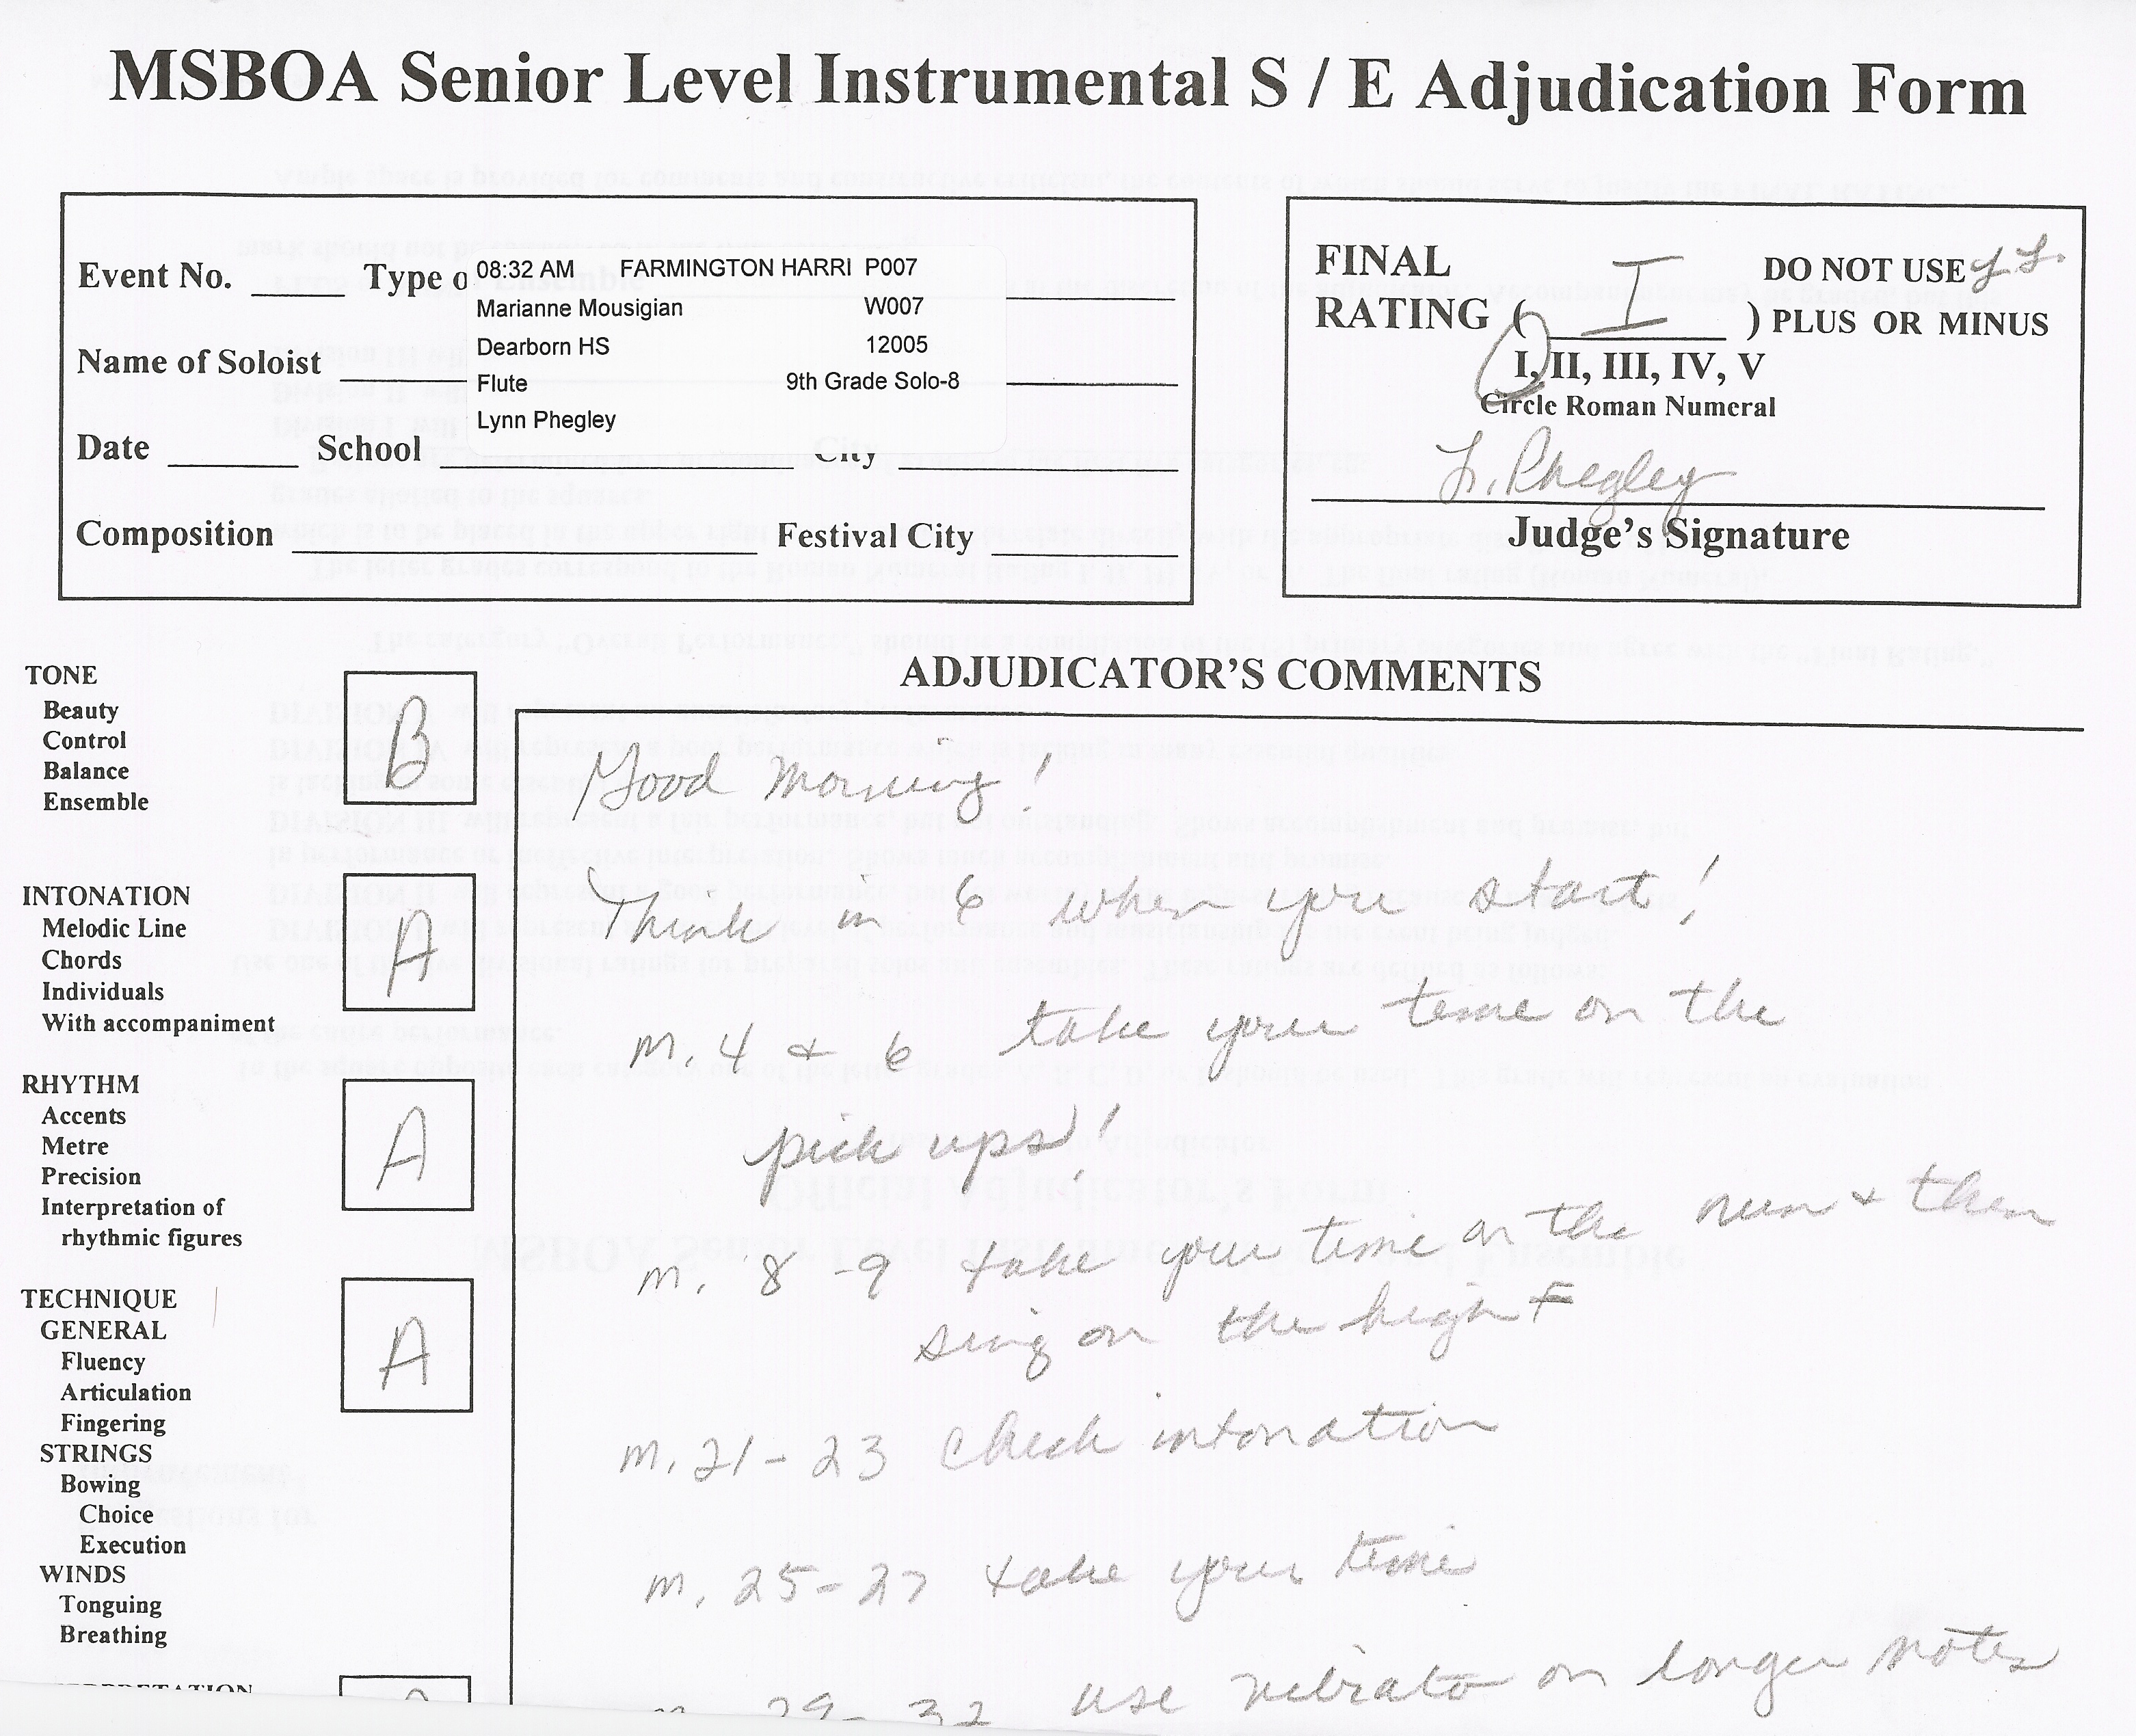 MSBOA Senior Level Instrumental S / E Adjudication Form
Event No. Type o
08:32 AM FARMINGTON HARRI P007
Marianne Mousigian W007
Dearborn HS 12005
Flute 9th Grade Solo-8
Lynn Phegley
Name of Soloist
Date School City
Composition Festival City
FINAL RATING ( I ) DO NOT USE PLUS OR MINUS
I, II, III, IV, V
Circle Roman Numeral
L. Phegley
Judge's Signature
ADJUDICATOR'S COMMENTS
TONE B
Beauty
Control
Balance
Ensemble
INTONATION A
Melodic Line
Chords
Individuals
With accompaniment
RHYTHM A
Accents
Metre
Precision
Interpretation of
rhythmic figures
TECHNIQUE A
GENERAL
Fluency
Articulation
Fingering
STRINGS
Bowing
Choice
Execution
WINDS
Tonguing
Breathing
Good Morning!
Think in 6 when you start!
m. 4 & 6 take your time on the
pick ups!
m. 8-9 take your time on the run & then
sing on the high F
m. 21-23 Check intonation
m. 25-27 take your time
m. 29-32 use vibrato on longer notes